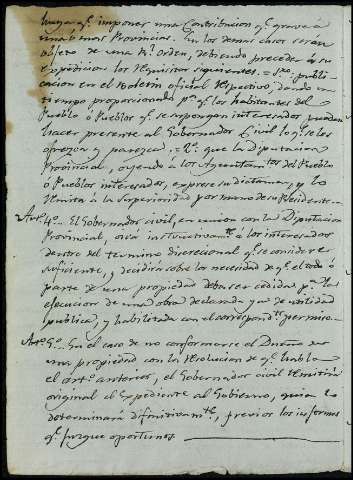 haya qe. imponer una Contribucion qe. grave a
una ó mas Provincias. En los demas casos serán
objeto de una Rl. orden, debiendo preceder á su
expedicion los requisitos siguientes = 1o. publi-
cacion en el Boletin oficial respectivo, dando un
tiempo proporcionado pa. qe. los habitantes del
Pueblo ó Pueblos qe. se supongan interesados puedan
hacer presente al Gobernador Civil lo qe. se les
ofrezca y parezca. = 2o. que la Diputacion
Provincial, oyendo á los Ayuntamtos. del Pueblo
ó Pueblos interesados, exprese su dictamen, y lo
remita á la Superioridad por mano de su Presidente.
Arto. 4o. El Gobernador civil, en union con la Diputacion
Provincial, oirá instructivamte. á los interesados
dentro del termino discrecional qe. se considere
suficiente, y decidirá sobre la necesidad de qe. el todo ó
parte de una propiedad deba ser cedida pa. la
ejecucion de una obra declarada ya de utilidad
publica, y habilitada con el correspondte. permiso.
Arto. 5o. En el caso de no conformarse el Dueño de
una propiedad con la resolucion de qe. habla
el arto. anterior, el Gobernador civil remitirá
original el Expediente al Gobierno, quien lo
determinará difinitivamte., previos los informes
qe. juzgue oportunos.